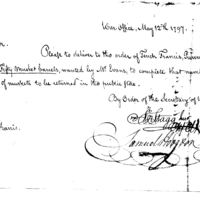 War Office, May 12th 1797.
Please to deliver to the order of Tench Francis,
Fifty musket barrels, wanted by Mr Evans, to complete that
of muskets to be returned in the public store.
By Order of the Secretary of
Jno Stagg
Samuel Hodgdon